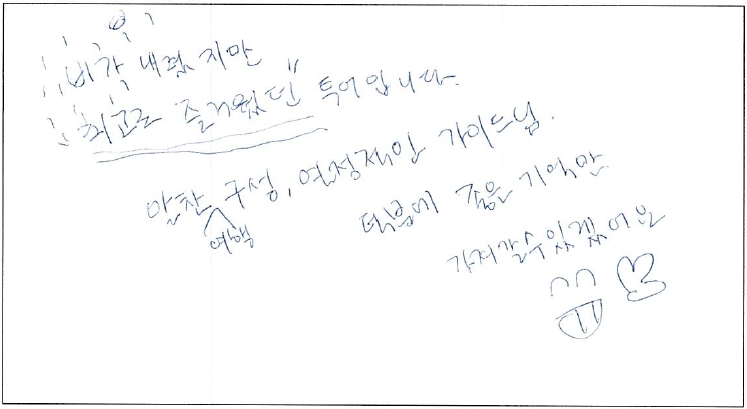 비가 내렸지만
최고로 즐거웠던" 투어입니다.
알찬 여행 구성, 열정재인 가이드님.
덕분에 좋은 기억만
가져갈수있겠어요